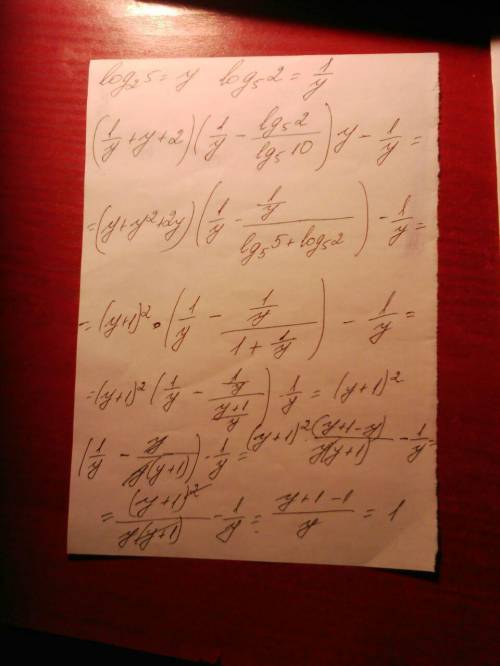 log₂5 = y log₅2 = 1/y
(1/y + y + 2)(1/y − lg₅2/lg₅10) y − 1/y =
= (y + y² + 2y)(1/y − (1/y)/(lg₅5 + log₅2)) − 1/y =
= (y+1)² · (1/y − (1/y)/(1 + 1/y)) − 1/y =
= (y+1)² (1/y − (1/y)/((y+1)/y)) − 1/y = (y+1)²
(1/y − y/(y(y+1))) − 1/y = (y+1)² (y+1−y)/(y(y+1)) − 1/y =
= (y+1)²/(y(y+1)) − 1/y = (y+1−1)/y = 1